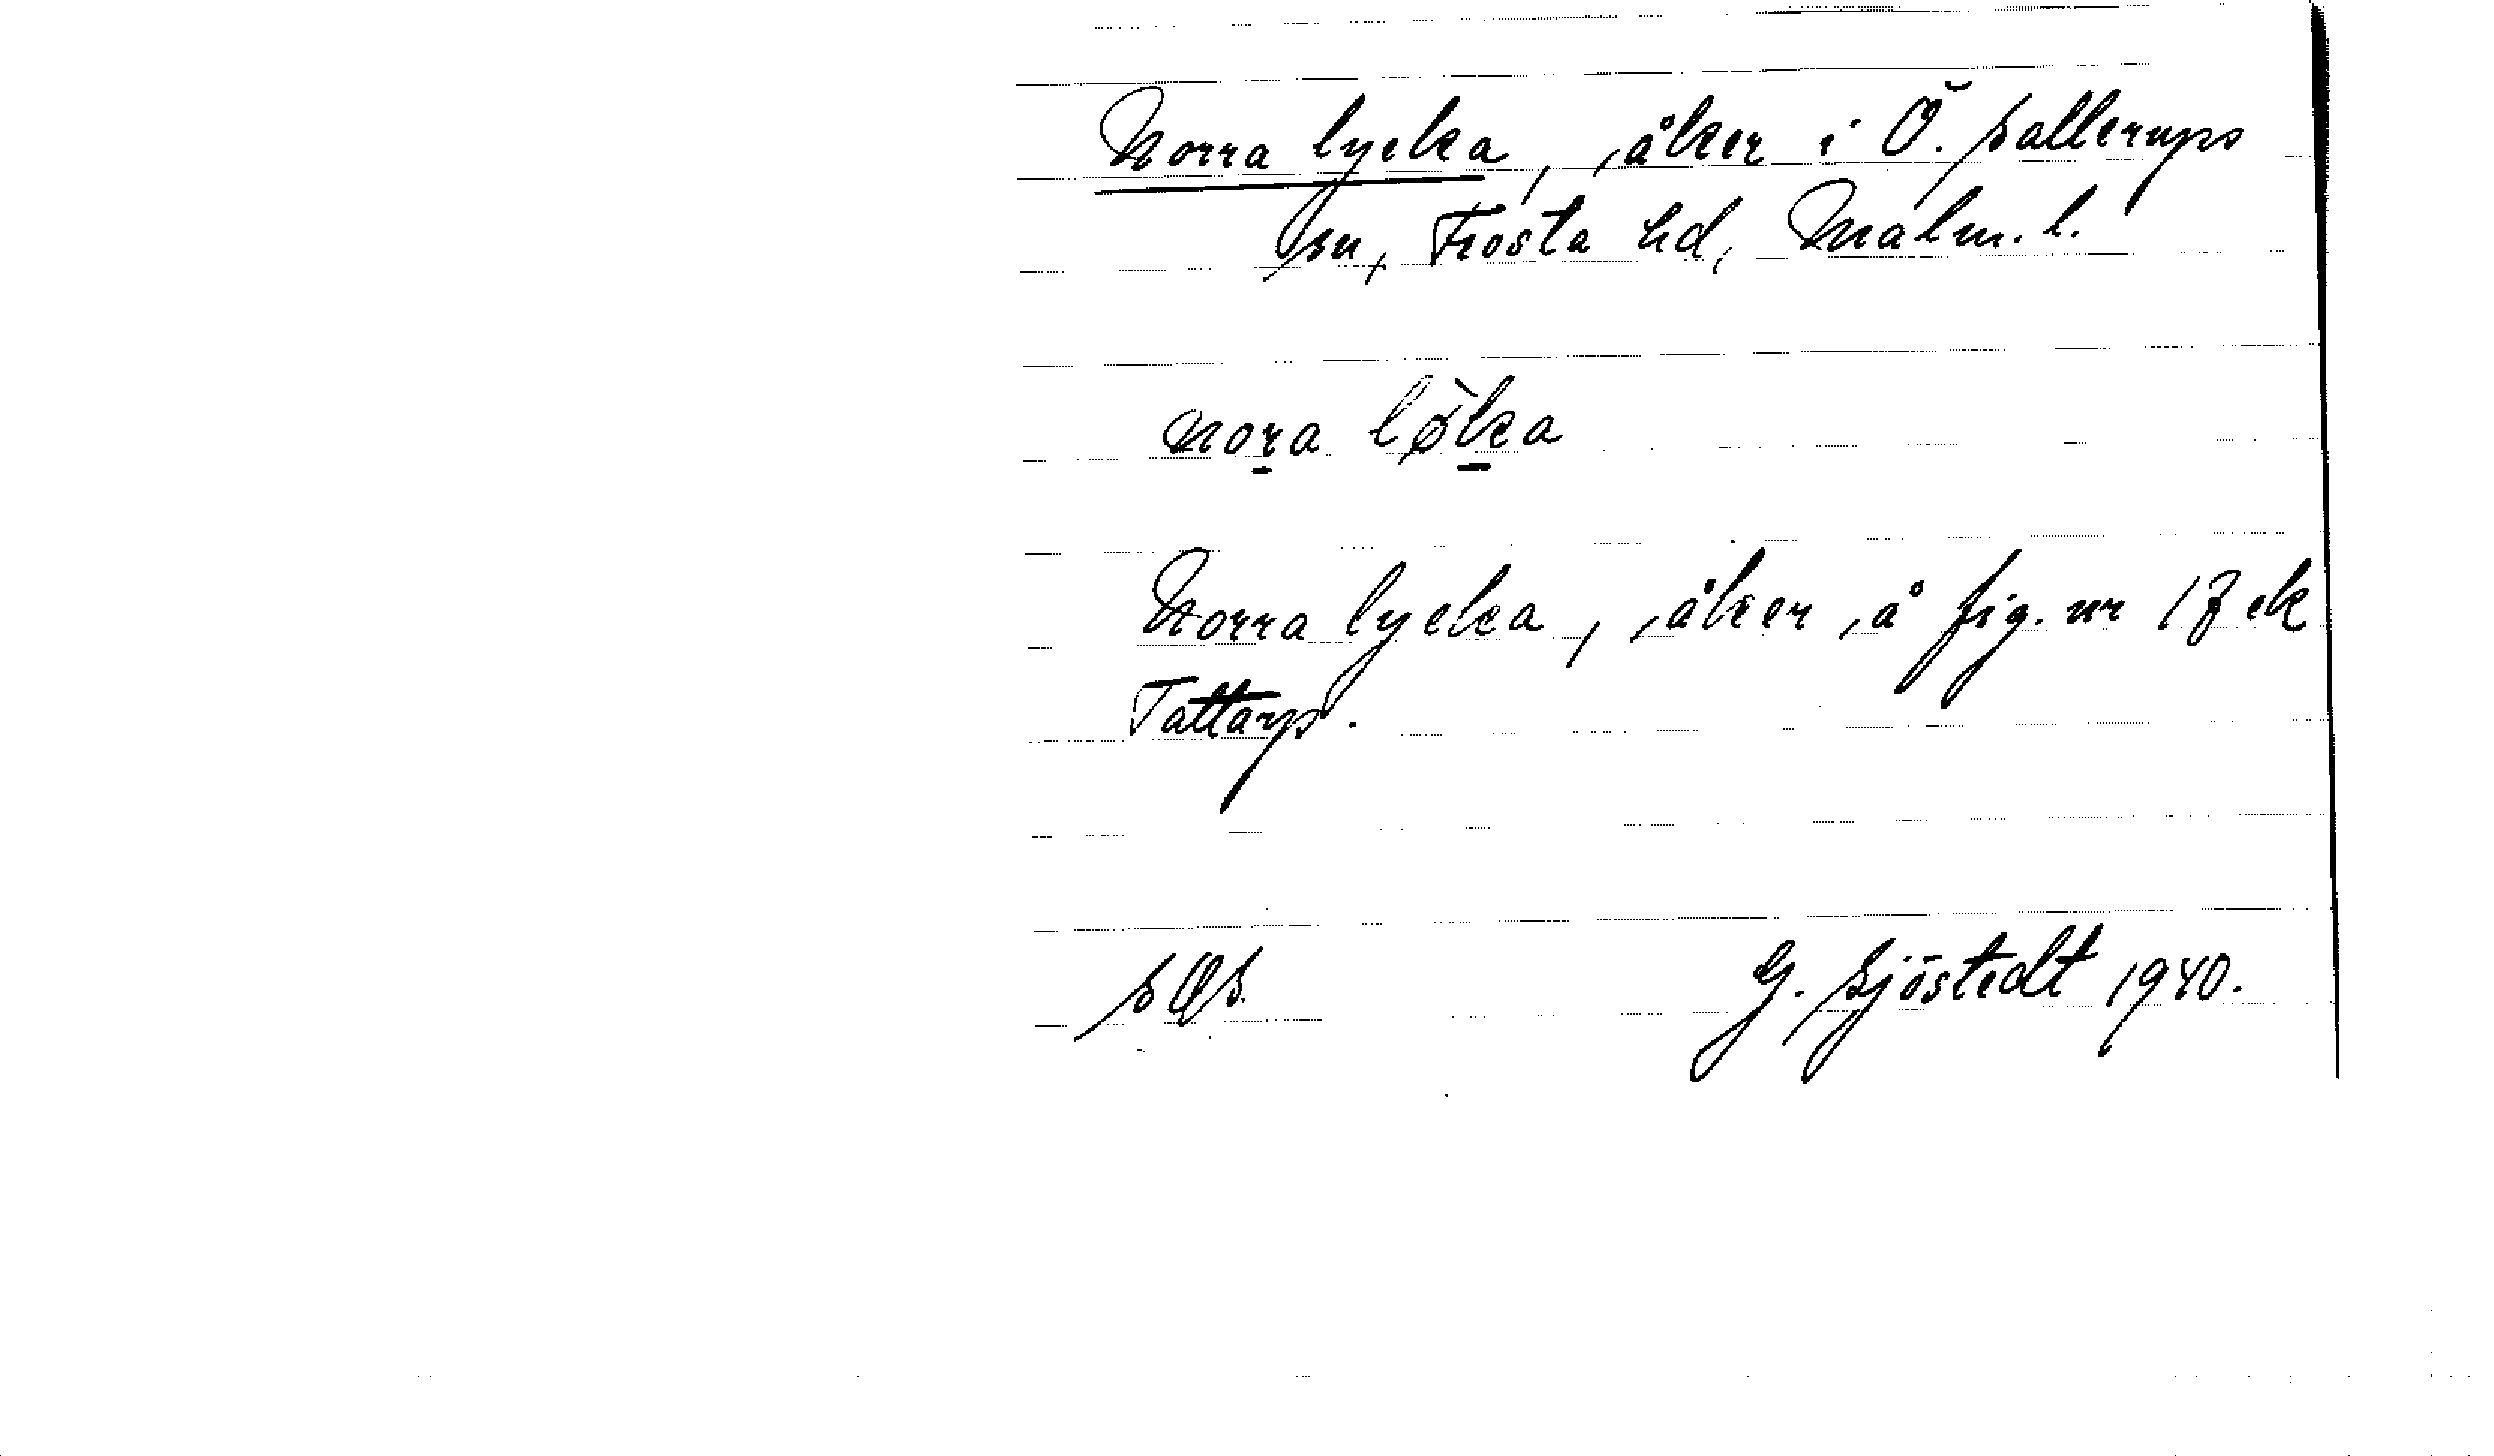 Norra lycka, åker i Ö. Sallerups
sn, Frosta hd, Malm. l.
nora løka
Norra lycka, åker å fig. nr 17 ek
Tattarp.
G. Sjöstedt 1940.